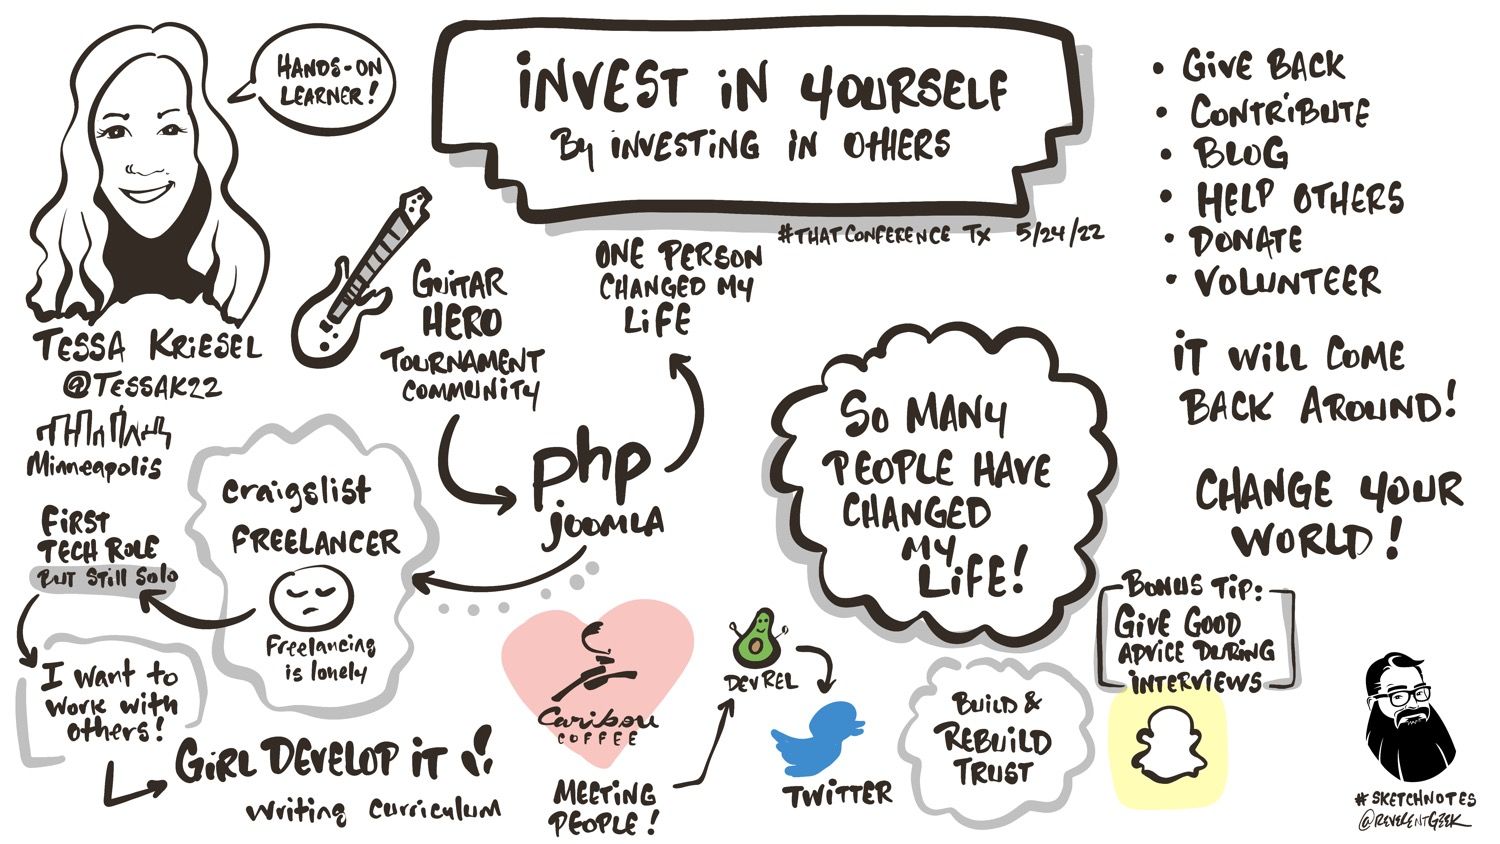 HANDS-ON
LEARNER!
INVEST IN YOURSELF
By INVESTING IN OTHERS
#THATCONFERENCE TX 5/24/22
TESSA KRIESEL
@TESSAK22
Minneapolis
GUITAR
HERO
TOURNAMENT
COMMUNITY
php
JOOMLA
ONE PERSON
CHANGED MY
LIFE
craigslist
FREELANCER
Freelancing
is lonely
FIRST
TECH ROLE
BUT STILL SOLO
I want to
work with
others!
GIRL DEVELOP IT
writing curriculum
Caribou
COFFEE
MEETING
PEOPLE!
DEVREL
TWITTER
SO MANY
PEOPLE HAVE
CHANGED
MY
LIFE!
BUILD &
REBUILD
TRUST
BONUS TIP:
GIVE GOOD
ADVICE DURING
INTERVIEWS
• GIVE BACK
• CONTRIBUTE
• BLOG
• HELP OTHERS
• DONATE
• VOLUNTEER
IT WILL COME
BACK AROUND!
CHANGE YOUR
WORLD!
#SKETCHNOTES
@REVERENTGEEK